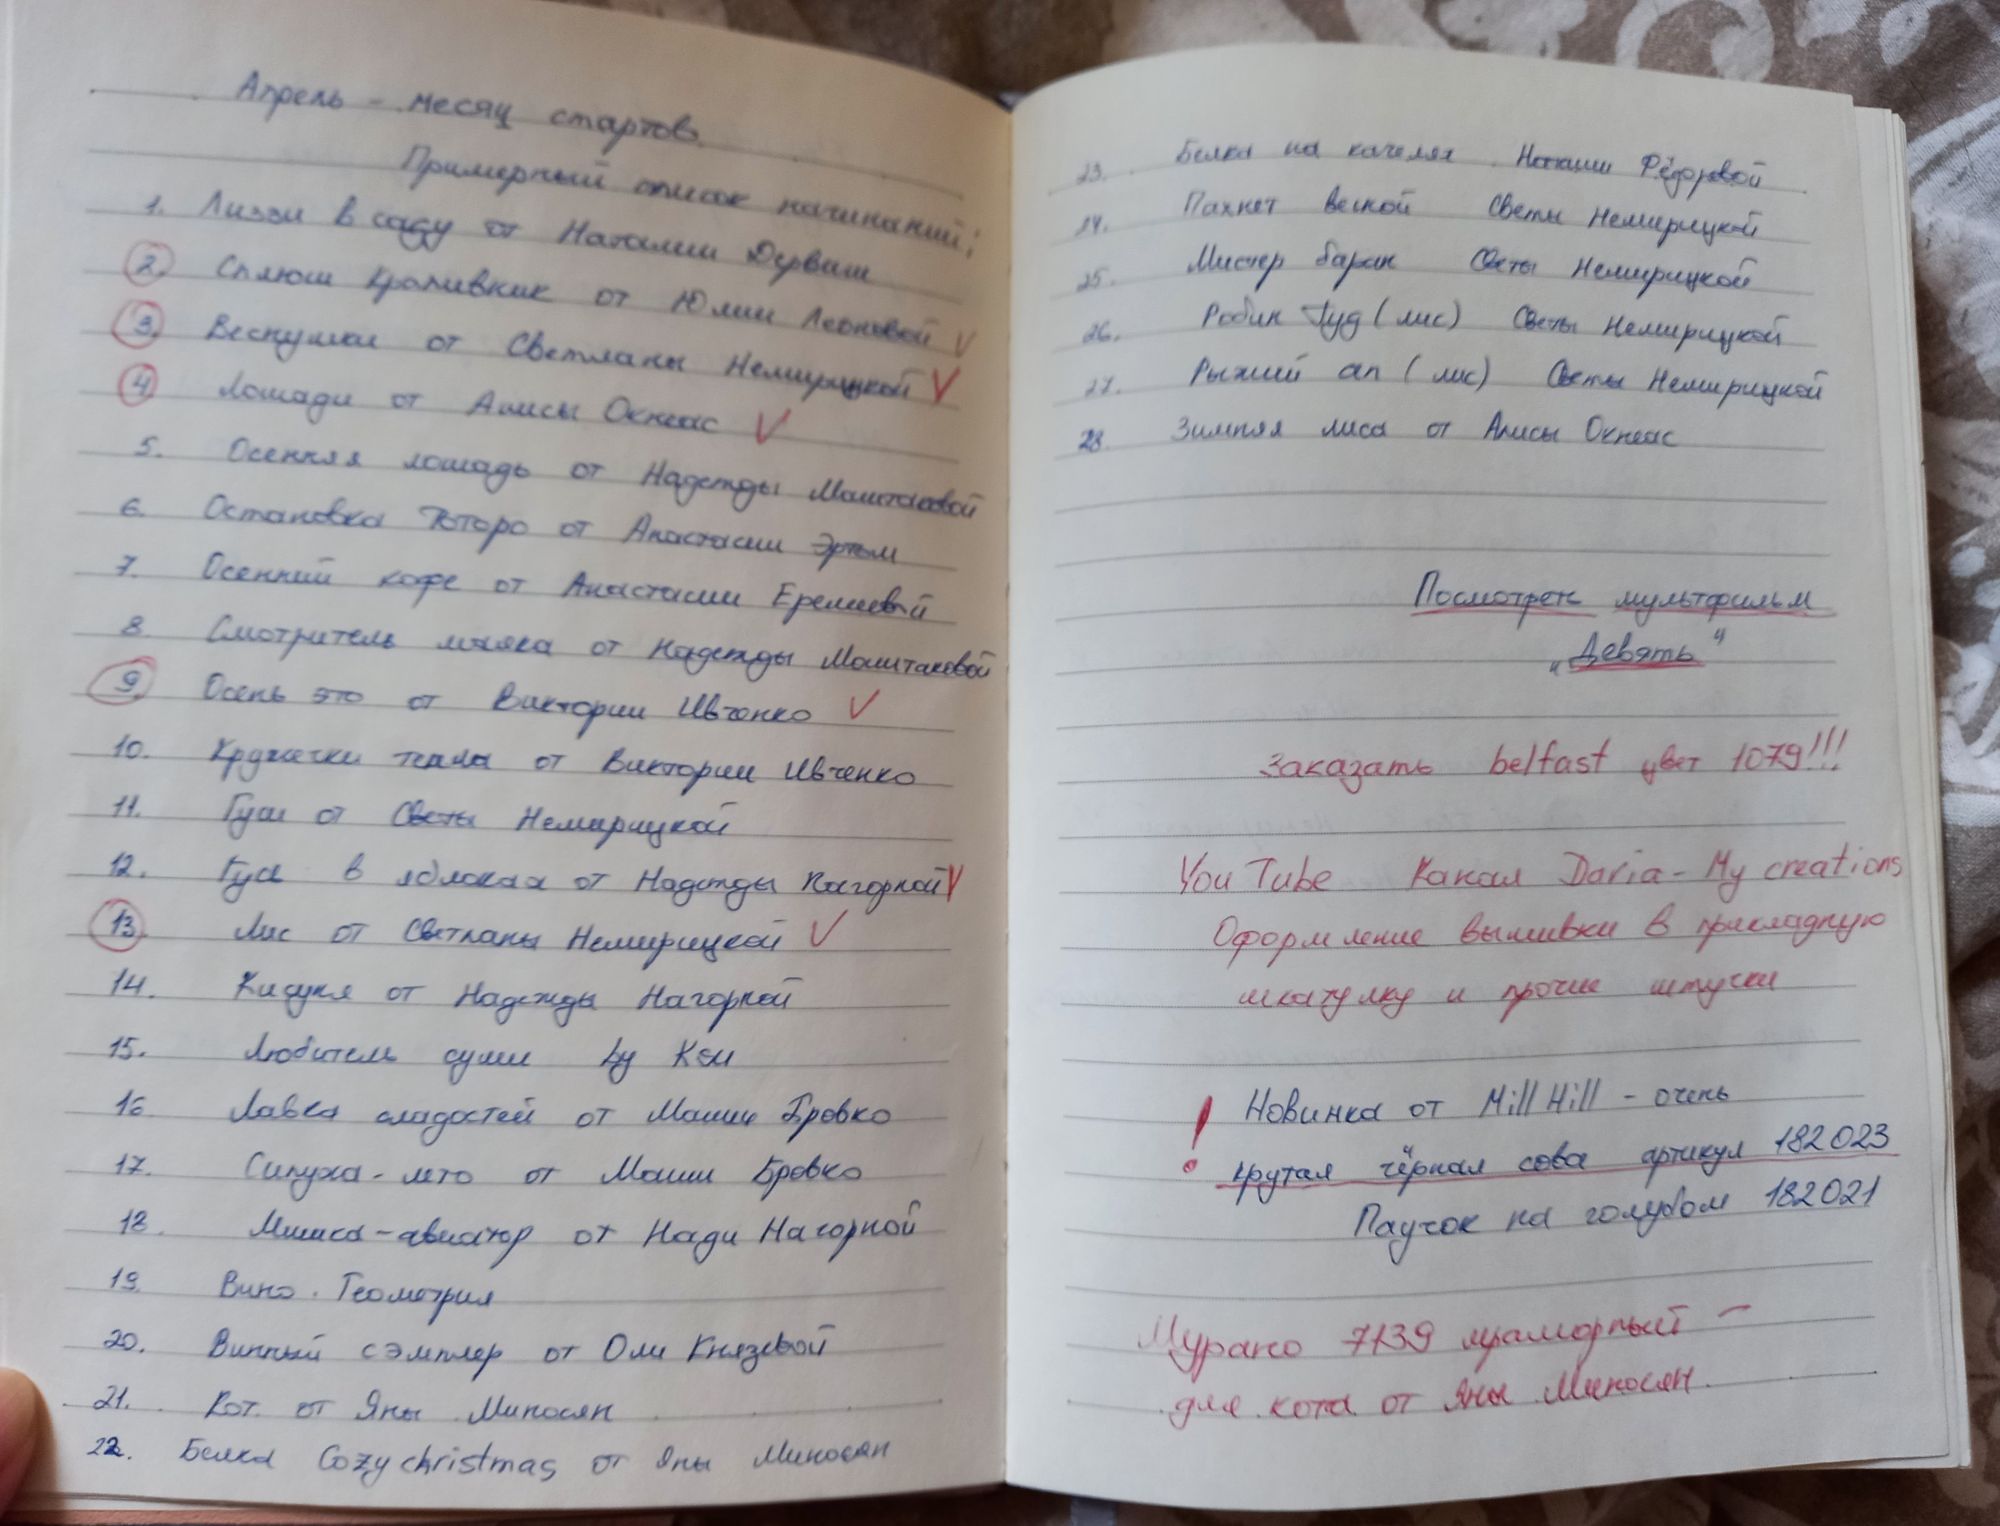 Апрель - месяц стартов
Примерный список начинаний:
1. Лиззи в саду от Наталии Дервиш
2. Сплюш Крапивник от Юлии Леоновой V
3. Веснушки от Светланы Немирицкой V
4. Лошади от Алисы Окнеас V
5. Осенняя лошадь от Надежды Маштаковой
6. Остановка Тоторо от Анастасии Эртем
7. Осенний кофе от Анастасии Еремеевой
8. Смотритель маяка от Надежды Маштаковой
9. Осень это от Виктории Ивченко V
10. Кружечки тепла от Виктории Ивченко
11. Гуси от Светы Немирицкой
12. Гуси в яблоках от Надежды Нагорной V
13. Лис от Светланы Немирицкой V
14. Кисуня от Надежды Нагорной
15. Любитель суши by Кси
16. Лавка сладостей от Маши Бровко
17. Сипуха-лето от Маши Бровко
18. Мишка-авиатор от Нади Нагорной
19. Вино. Геометрия
20. Винный сэмплер от Оли Князевой
21. Кот от Яны Миносян
22. Белка Cozy christmas от Яны Миносян
23. Белка на качелях Наташи Фёдоровой
24. Пахнет весной Светы Немирицкой
25. Мистер баран Светы Немирицкой
26. Робин Гуд (лис) Светы Немирицкой
27. Рыжий ап (лис) Светы Немирицкой
28. Зимняя лиса от Алисы Окнеас
Посмотрет мультфильм
"Девять"
Заказать belfast цвет 1079!!!
YouTube Канал Daria-My creations
Оформление вышивки в прикладную
шкатулку и прочие штучки
! Новинка от Mill Hill - очень
крутая чёрная сова артикул 182023
Паучок на голубом 182021
Мурано 7139 мраморный -
для кота от Яны Миносян